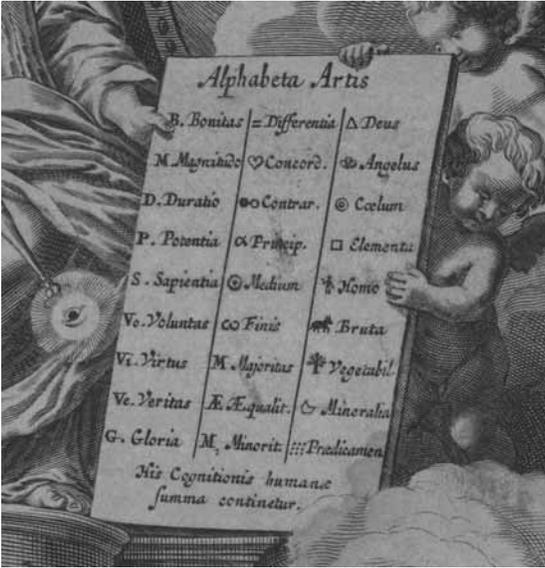 Alphabeta Artis
B. Bonitas = Differentia Δ Deus
M. Magnitudo ♡ Concord. Angelus
D. Duratio Contrar. ◎ Cœlum
P. Potentia α Princip. □ Elementa
S. Sapientia ☉ Medium Homo
Vo. Voluntas ꝏ Finis Bruta
Vi. Virtus M Majoritas Vegetabil.
Ve. Veritas Æ Æqualit. Mineralia
G. Gloria M, Minorit: Prædicamen
His Cognitionis humanæ
summa continetur.